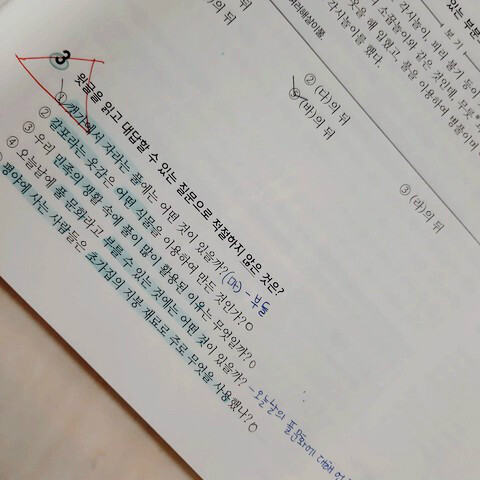 있는 부분
보기
각시놀이, 피리 불기 등이
의 소꿉놀이와 같은 것인데, 무릇*
옷을 해 입혔고, 풀을 이용하여 병풍이며
각시놀이를 했다.
의 뒤
② (다)의 뒤
③ (라)의 뒤
⑤ (바)의 뒤
3
윗글을 읽고 대답할 수 있는 질문으로 적절하지 않은 것은?
① 갯가에서 자라는 풀에는 어떤 것이 있을까? (마) - 부들
② 갈포라는 옷감은 어떤 식물을 이용하여 만든 것인가? O
③ 우리 민족의 생활 속에 풀이 많이 활용된 이유는 무엇일까? O
④ 오늘날에 풀 문화라고 부를 수 있는 것에는 어떤 것이 있을까? - 오늘날의 풀문화에 대해
평야에 사는 사람들은 초가집의 지붕 재료로 주로 무엇을 사용했나? O